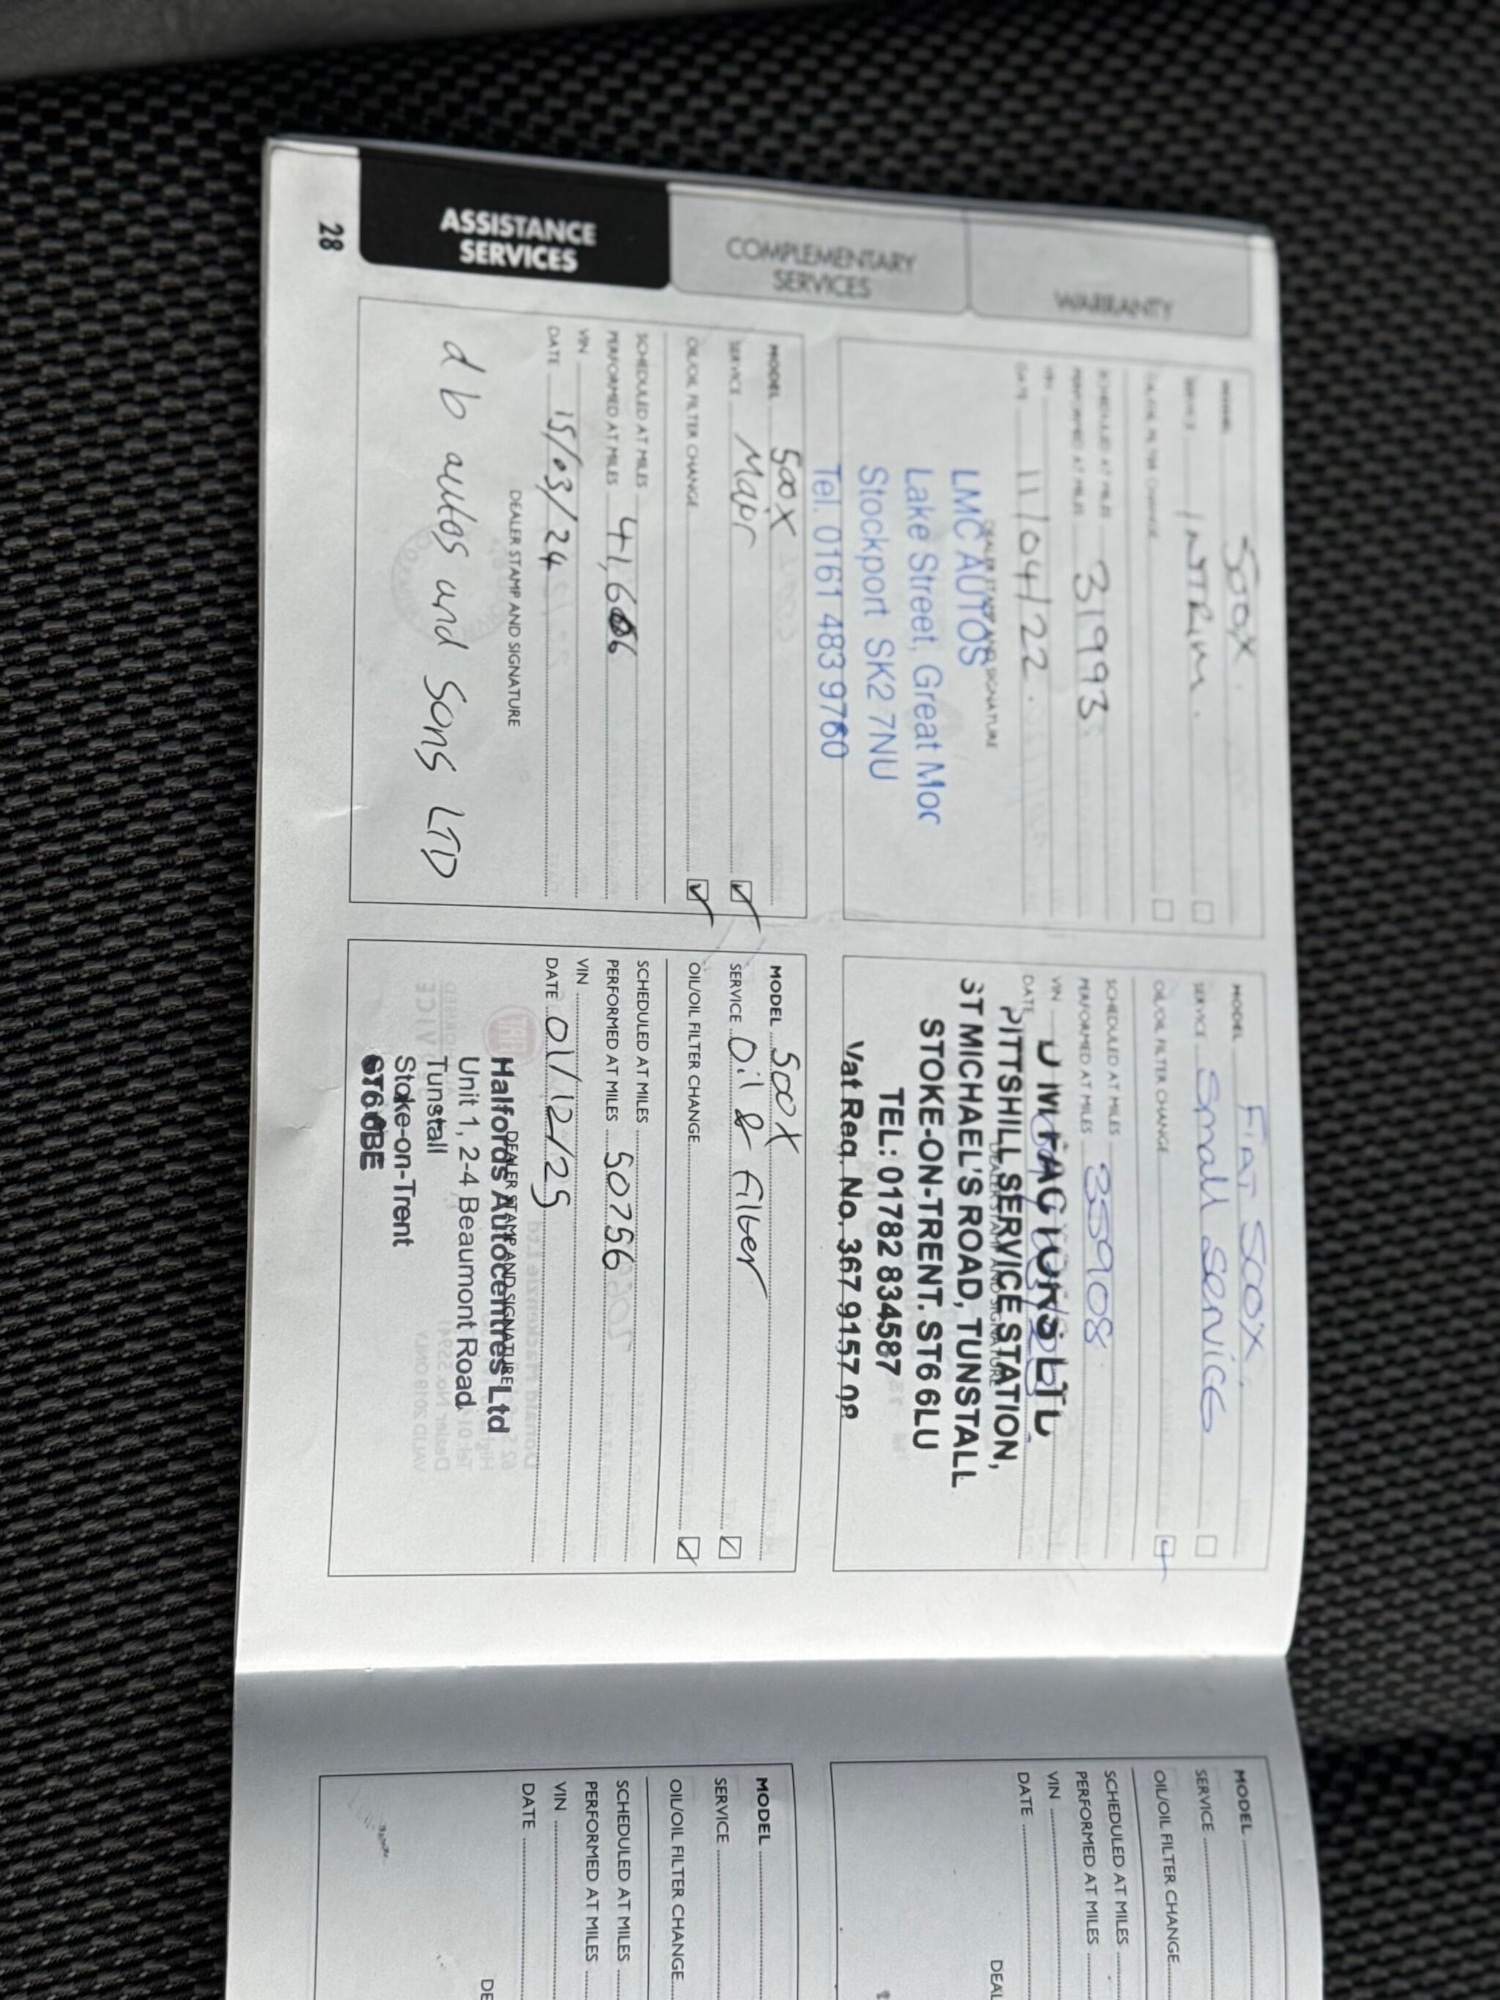 WARRANTY
COMPLEMENTARY
SERVICES
ASSISTANCE
SERVICES
28
MODEL 500X
SERVICE INTRIM.
OIL/OIL FILTER CHANGE
SCHEDULED AT MILES
PERFORMED AT MILES 31993
VIN
DATE 11/04/22.
DEALER STAMP AND SIGNATURE
LMC AUTOS
Lake Street, Great Mor
Stockport SK2 7NU
Tel. 0161 483 9760
MODEL FIAT 500X.
SERVICE Small Service
OIL/OIL FILTER CHANGE
SCHEDULED AT MILES
PERFORMED AT MILES 35908
VIN
DATE
DEALER STAMP AND SIGNATURE
PITTSHILL SERVICE STATION,
ST MICHAEL'S ROAD, TUNSTALL
STOKE-ON-TRENT. ST6 6LU
TEL: 01782 834587
Vat Reg. No. 367 9157 08
MODEL 500X
SERVICE Major
OIL/OIL FILTER CHANGE
SCHEDULED AT MILES
PERFORMED AT MILES 41,666
VIN
DATE 15/03/24
DEALER STAMP AND SIGNATURE
d b autos and Sons LTD
MODEL 500X
SERVICE Oil & filter
OIL/OIL FILTER CHANGE
SCHEDULED AT MILES
PERFORMED AT MILES 50756
VIN
DATE 01/12/25
DEALER STAMP AND SIGNATURE
Halfords Autocentres Ltd
Unit 1, 2-4 Beaumont Road
Tunstall
Stoke-on-Trent
ST6 6BE
MODEL
SERVICE
OIL/OIL FILTER CHANGE
SCHEDULED AT MILES
PERFORMED AT MILES
VIN
DATE
DEAL
MODEL
SERVICE
OIL/OIL FILTER CHANGE
SCHEDULED AT MILES
PERFORMED AT MILES
VIN
DATE
DE